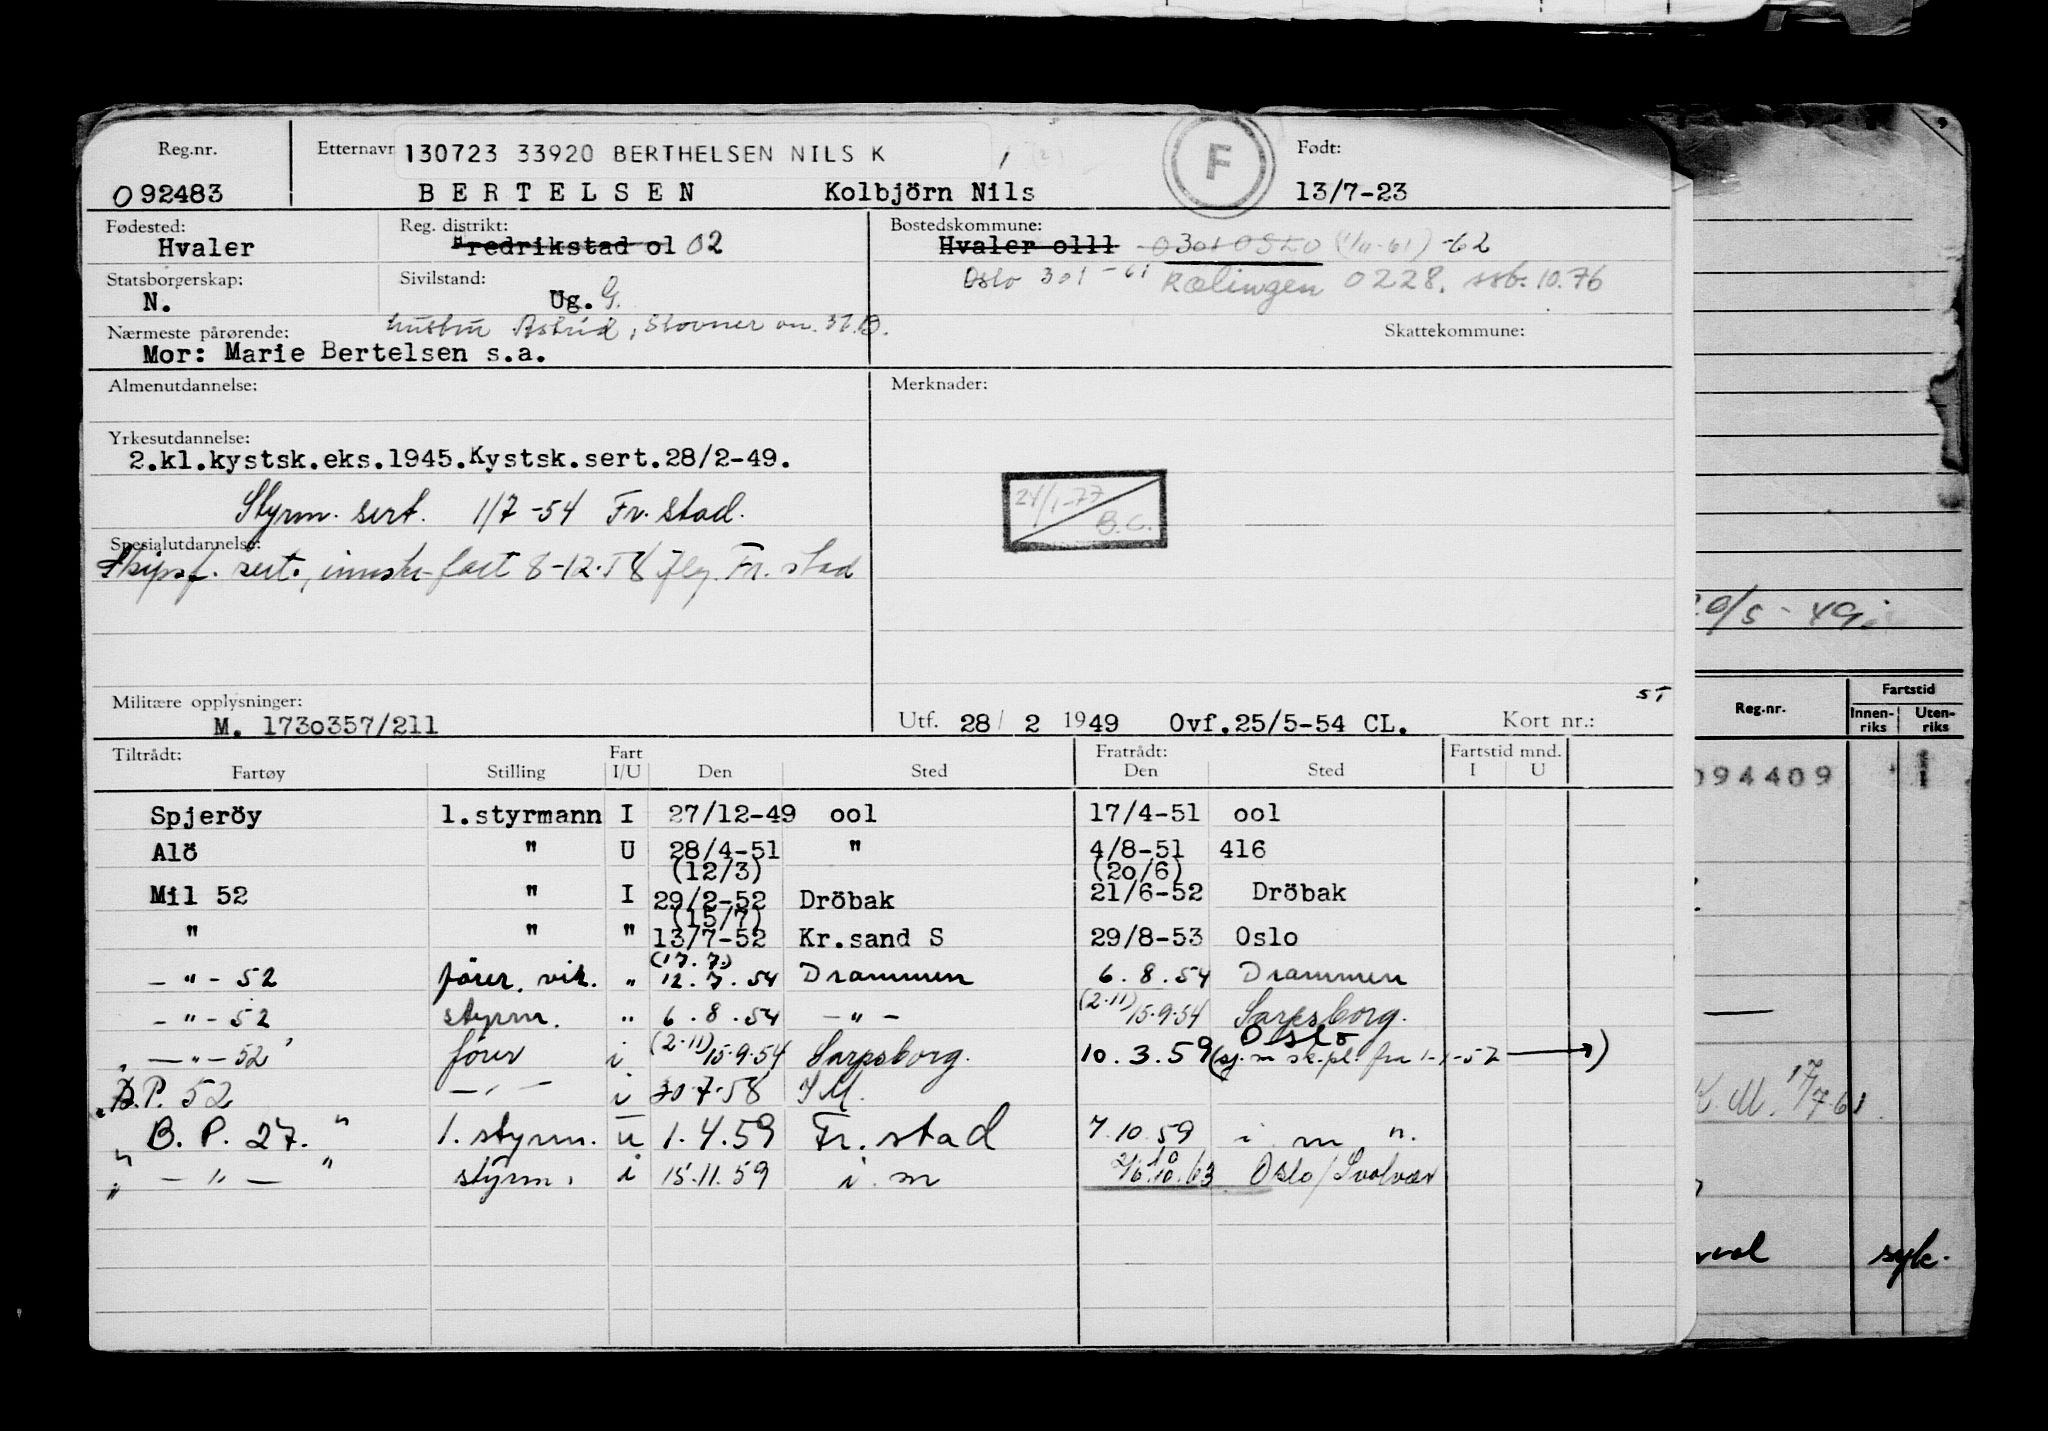 Reg.nr. Etternavn 130723 33920 BERTHELSEN NILS K F Født:
092483 BERTELSEN Kolbjörn Nils 13/7-23
Fødested: Reg. distrikt: Bostedskommune:
Hvaler Fredrikstad ol 02 Hvaler olll 0301 OSLO (1/11-61) -62
Statsborgerskap: Sivilstand: Oslo 301 -61 Rælingen 0228. ssb. 10.76
N. Ug. G.
Nærmeste pårørende: hustru Astrid, Stovner vn. 37.B. Skattekommune:
Mor: Marie Bertelsen s.a.
Almenutdannelse: Merknader:
Yrkesutdannelse:
2.kl.kystsk.eks.1945.Kystsk.sert.28/2-49.
24/1-77
B.C.
Styrm. sert. 1/7-54 Fr. stad.
Spesialutdannelse:
Skipsf. sert., innskr. fart 8-12-58 Fr. stad
Militære opplysninger: 5T
M. 1730357/211 Utf. 28/ 2 1949 Ovf.25/5-54 CL. Kort nr.:
Tiltrådt: Fart Fratrådt: Fartstid mnd.
Fartøy Stilling I/U Den Sted Den Sted I U
Spjeröy 1.styrmann I 27/12-49 ool 17/4-51 ool
Alö " U 28/4-51 " 4/8-51 416
(12/3) (20/6)
Mil 52 " I 29/2-52 Dröbak 21/6-52 Dröbak
(15/7)
" " " 13/7-52 Kr.sand S 29/8-53 Oslo
(17.7.)
- " - 52 förer. vik. " 12.7.54 Drammen 6.8.54 Drammen
- " - 52 styrm. " 6.8.54 - " - (2.11) 15.9.54 Sarpsborg.
Oslo
- " - 52 förer i (2.11) 15.9.54 Sarpsborg. 10.3.59 (sj.m sk.pl. fra 1-1-57 →)
"B.P. 52 - " - i 30.7.58 I M.
" B. P. 27. " 1. styrm. u 1.4.59 Fr. stad 7.10.59 i m n.
" - " - " styrm. i 15.11.59 i. m 10.63 Oslo/Svolvær
29/5 - 49
Reg.nr. Fartstid
Innen-riks Uten-riks
094409 1
K. M. 17/7-61
syk.